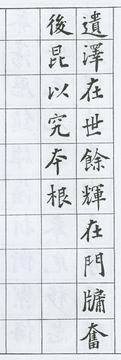 遺澤在世餘輝在門牖奮
後昆以究本根